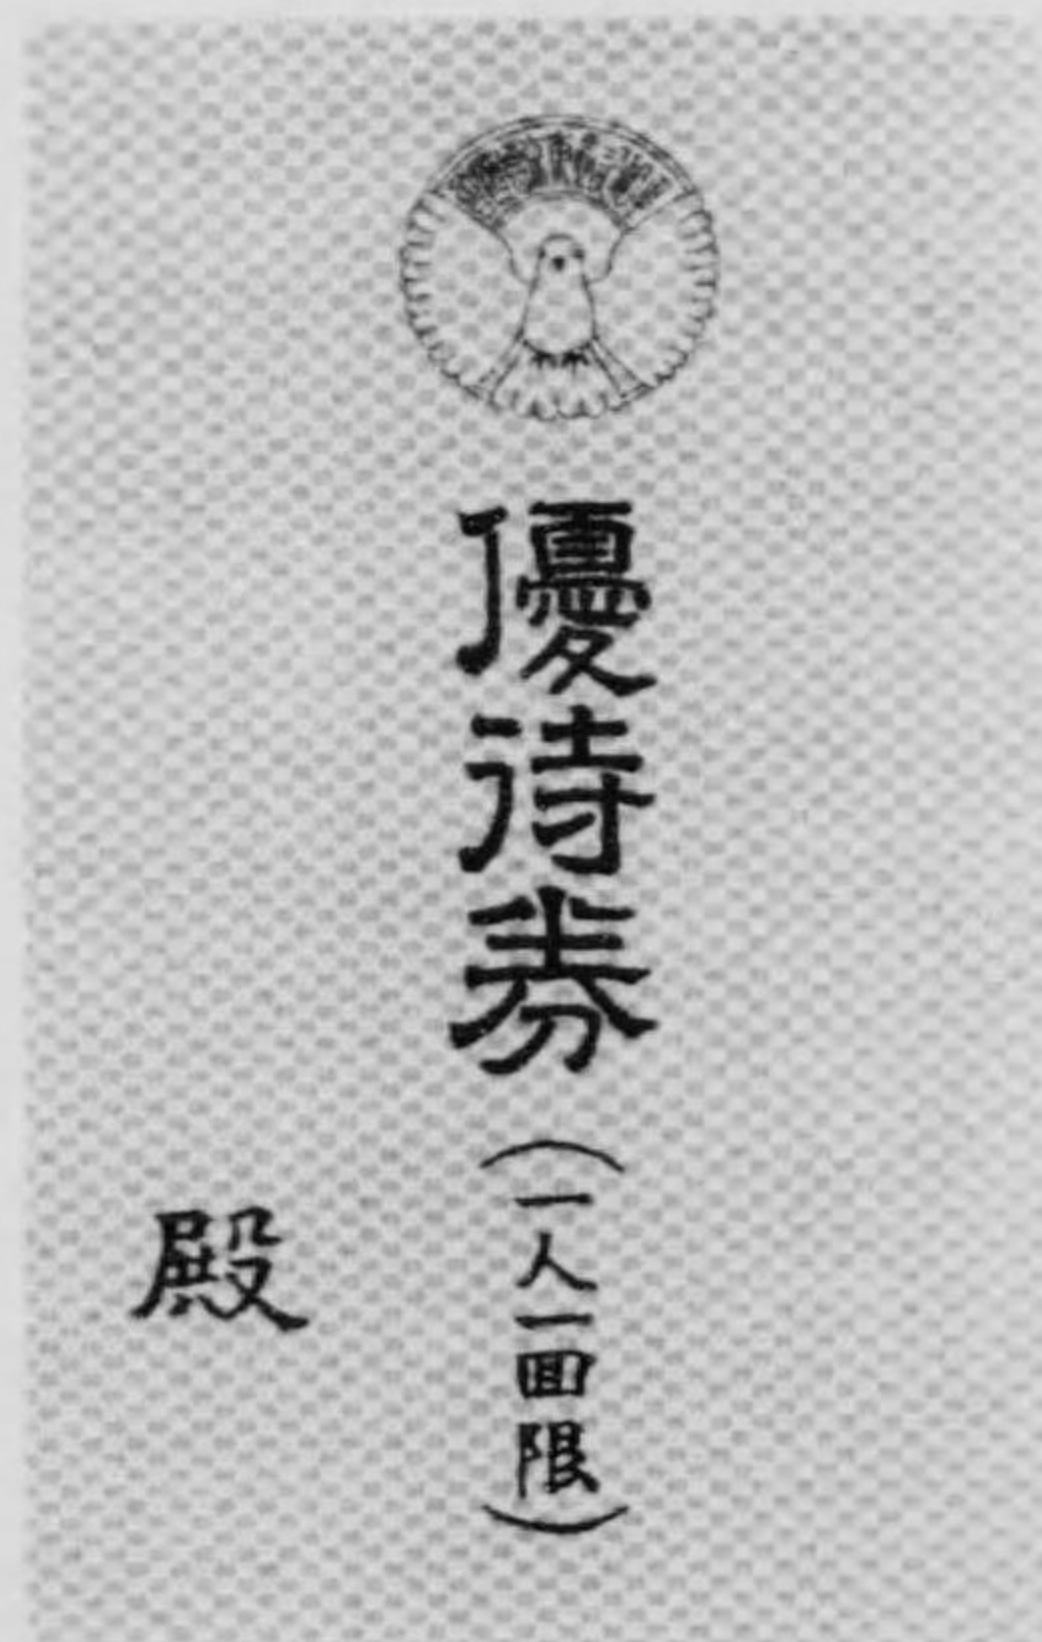 優待券(一人一回限)
殿